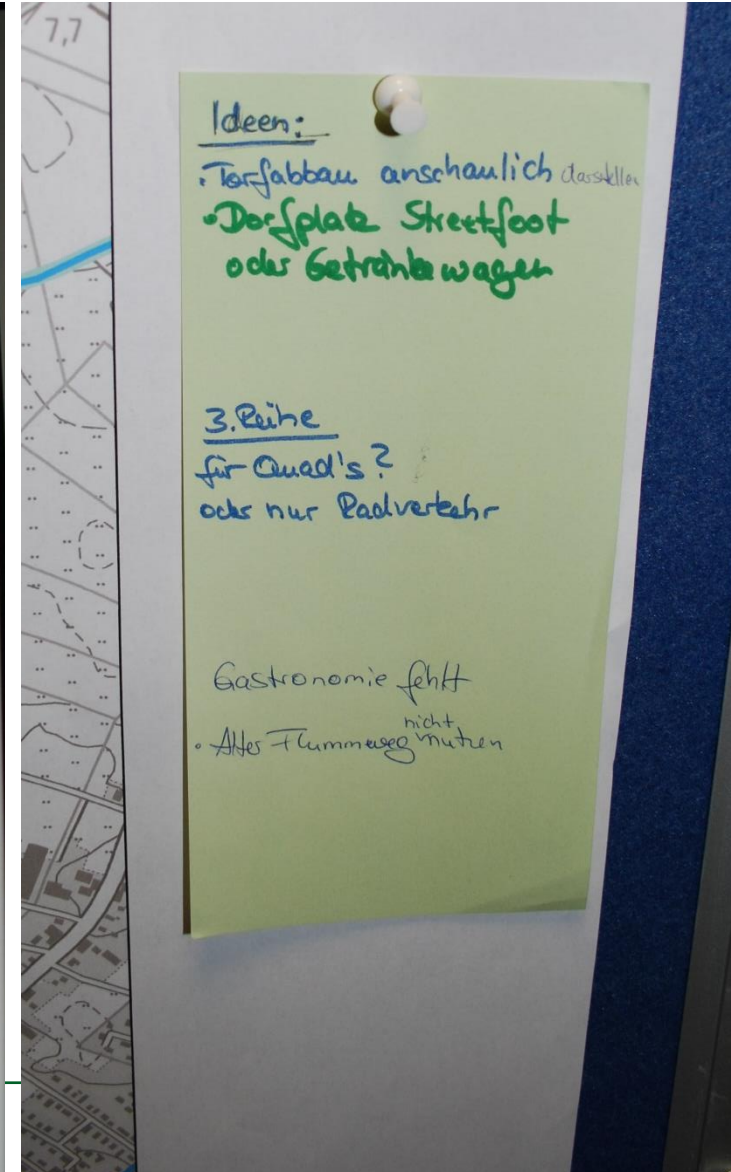 7,7
Ideen:
• Torfabbau anschaulich darstellen
• Dorfplatz Streetfoot
oder Getränkewagen
3. Reihe
für Quad's?
oder nur Radverkehr
Gastronomie fehlt
nicht
• Alter Flummweg nutzen